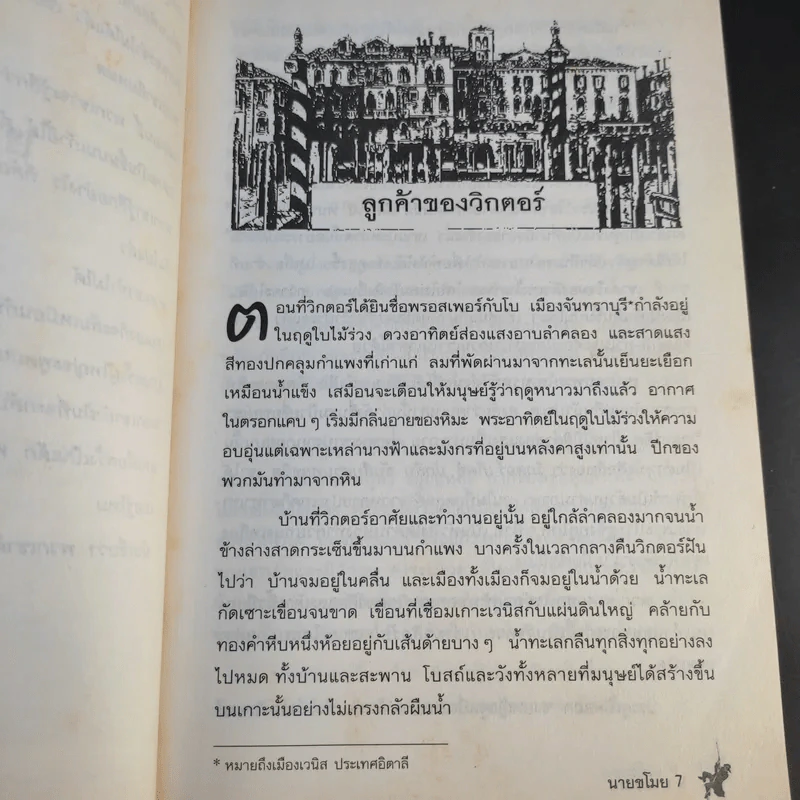 ลูกค้าของวิกตอร์
ตอนที่วิกตอร์ได้ยินชื่อพรอสเพอร์กับโบ เมืองจันทราบุรี*กำลังอยู่
ในฤดูใบไม้ร่วง ดวงอาทิตย์ส่องแสงอาบลำคลอง และสาดแสง
สีทองปกคลุมกำแพงที่เก่าแก่ ลมที่พัดผ่านมาจากทะเลนั้นเย็นยะเยือก
เหมือนน้ำแข็ง เสมือนจะเตือนให้มนุษย์รู้ว่าฤดูหนาวมาถึงแล้ว อากาศ
ในตรอกแคบ ๆ เริ่มมีกลิ่นอายของหิมะ พระอาทิตย์ในฤดูใบไม้ร่วงให้ความ
อบอุ่นแต่เฉพาะเหล่านางฟ้าและมังกรที่อยู่บนหลังคาสูงเท่านั้น ปีกของ
พวกมันทำมาจากหิน
บ้านที่วิกตอร์อาศัยและทำงานอยู่นั้น อยู่ใกล้ลำคลองมากจนน้ำ
ข้างล่างสาดกระเซ็นขึ้นมาบนกำแพง บางครั้งในเวลากลางคืนวิกตอร์ฝัน
ไปว่า บ้านจมอยู่ในคลื่น และเมืองทั้งเมืองก็จมอยู่ในน้ำด้วย น้ำทะเล
กัดเซาะเขื่อนจนขาด เขื่อนที่เชื่อมเกาะเวนิสกับแผ่นดินใหญ่ คล้ายกับ
ทองคำหีบหนึ่งห้อยอยู่กับเส้นด้ายบาง ๆ น้ำทะเลกลืนทุกสิ่งทุกอย่างลง
ไปหมด ทั้งบ้านและสะพาน โบสถ์และวังทั้งหลายที่มนุษย์ได้สร้างขึ้น
บนเกาะนั้นอย่างไม่เกรงกลัวผืนน้ำ
* หมายถึงเมืองเวนิส ประเทศอิตาลี
นายขโมย 7